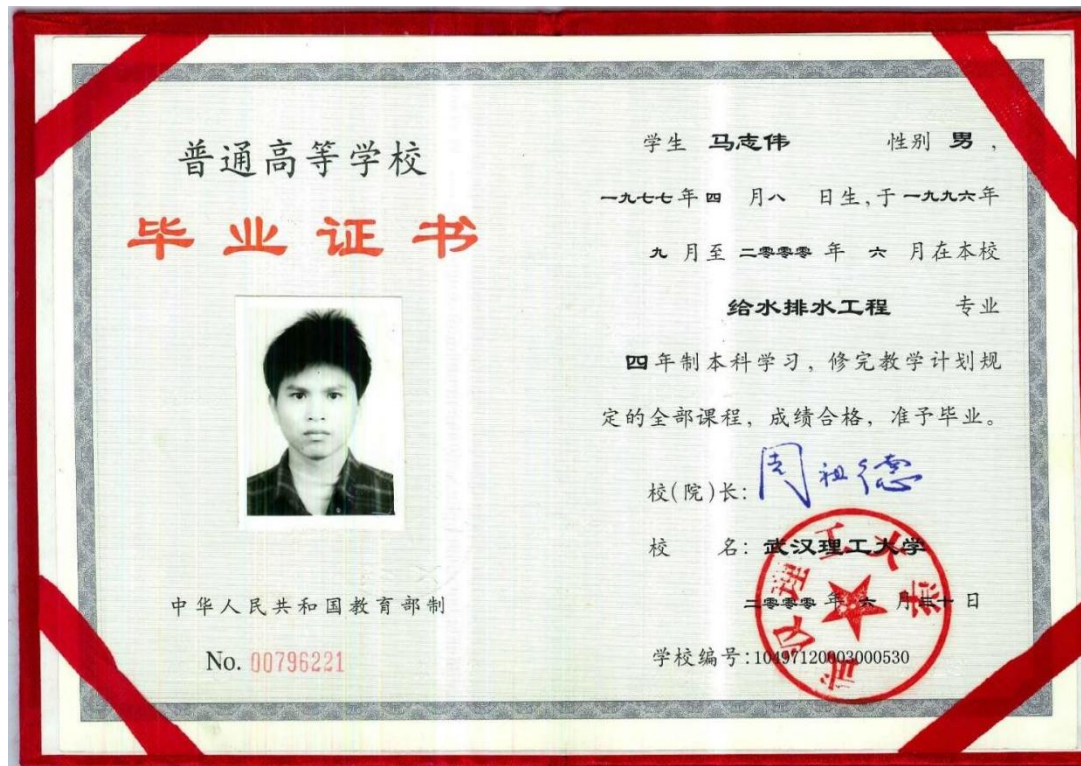 普通高等学校
毕业证书
中华人民共和国教育部制
No. 00796221
学生 马志伟 性别 男，
一九七七年四 月八 日生，于一九九六年
九 月至 二零零零 年 六 月在本校
给水排水工程 专业
四年制本科学习，修完教学计划规
定的全部课程，成绩合格，准予毕业。
校(院)长：周祖德
校 名：武汉理工大学
二零零零 年 六 月 三十 日
学校编号：10497120003000530
武汉理工大学